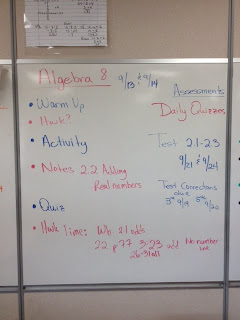 Algebra 8 9/13 & 9/14
Assessments
Daily Quizzes
• Warm Up
• Hwk?
• Activity
Test 2.1-2.3
9/21 & 9/24
• Notes 2.2 Adding
Real numbers
Test Corrections
due
3rd 9/19 5th 9/20
• Quiz
• Hwk Time: Wb 2.1 odds
2.2 p 77 3-23 odd No number line
26-31 all